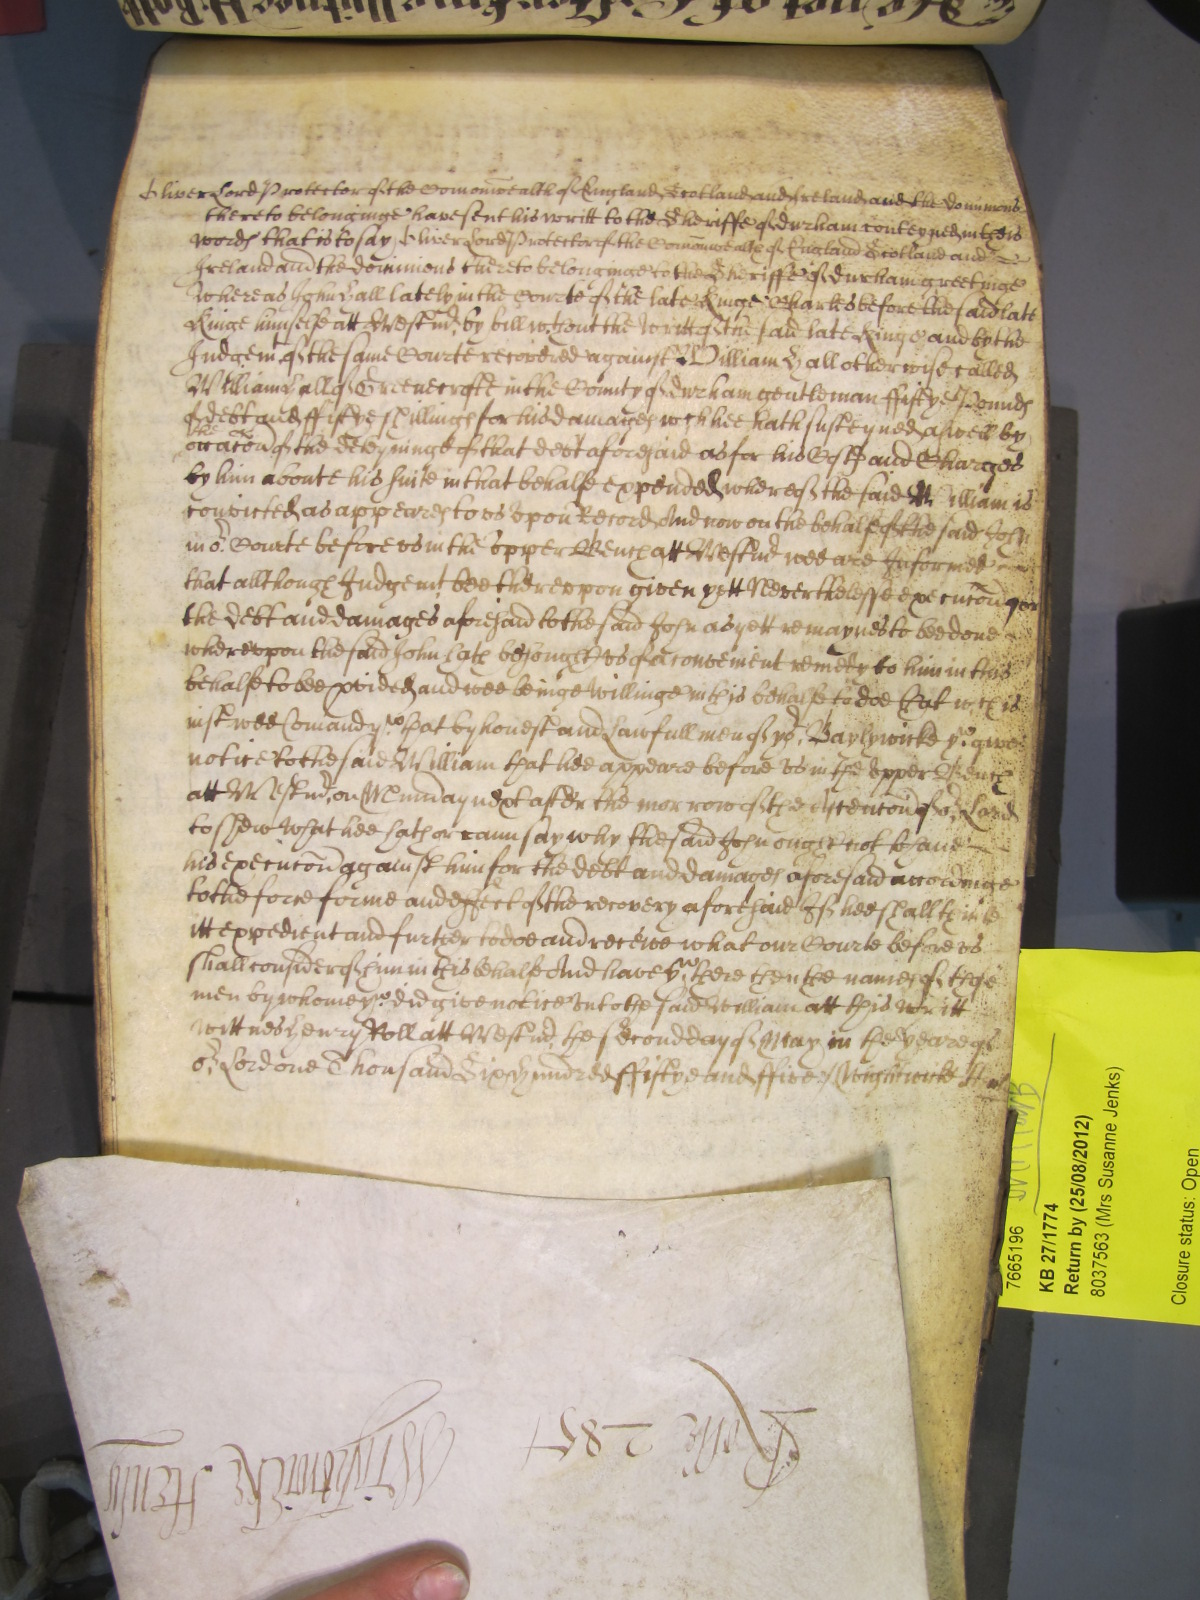 Oliver Lord Protector of the Comonwealth of England Scotland and Ireland and the dominions
thereto belonginge have sent his writt to the Sheriffe of durham conteyned in theis
words that is to say Oliver Lord Protector of the Comonwealth of England Scotland and
Ireland and the dominions thereto belonginge to the Sheriffe of durham greetinge
Whereas John Hall lately in the Courte of the late Kinge Charles before the said late
Kinge himselfe att Westmr. by bill wthout the writt of the said late Kinge and by the
Judgemt. of the same Courte recovered against William Hall otherwise called
William Hall of Greenecrofte in the County of durham gentleman ffiftye Pounds
of debt and ffiftye shillings for his damages wch hee hath susteyned aswell by
the occacon of the deteyninge of that debt aforesaid as for his Costs and Charges
by him aboute his suite in that behalfe expended whereof the said William is
convicted as appeares to us upon Record And now on the behalfe of the said John
in or. Courte before us in the upper Bench att Westmr. wee are Informed
that allthough Judgemt. bee thereupon given yett Neverthelesse execucon for
the debt and damages aforesaid to the said John as yett remaynes to bee done
whereupon the said John hath besought us of a convenient remedy to him in this
behalfe to bee provided and wee beinge willinge in this behalfe to doe that wch is
iust wee Comand you that by honest and Lawfull men of yor. Baylywicke you give
notice to the said William that hee appeare before us in the upper Bench
att Westmr. on Munday next after the morrow of the Ascencon of or. Lord
to shew what hee hath or cann say why the said John ought not to have
his execucon against him for the debt and damages aforesaid accordinge
to the force forme and effect of the recovery aforesaid If hee shall thinke
itt expedient and further to doe and receive what our Courte before us
shall consider of him in this behalfe And have you there then the names of those
men by whome you did give notice unto the said William att this writt
wittnes Henry Roll att Westmr. the second day of May in the yeare of
or. Lord one Thousand Six hundred ffiftye and ffive / Wightwicke
Rolle 285
Wightwicke
7665196
KB 27/1774
Return by (25/08/2012)
8037563 (Mrs Susanne Jenks)
Closure status: Open